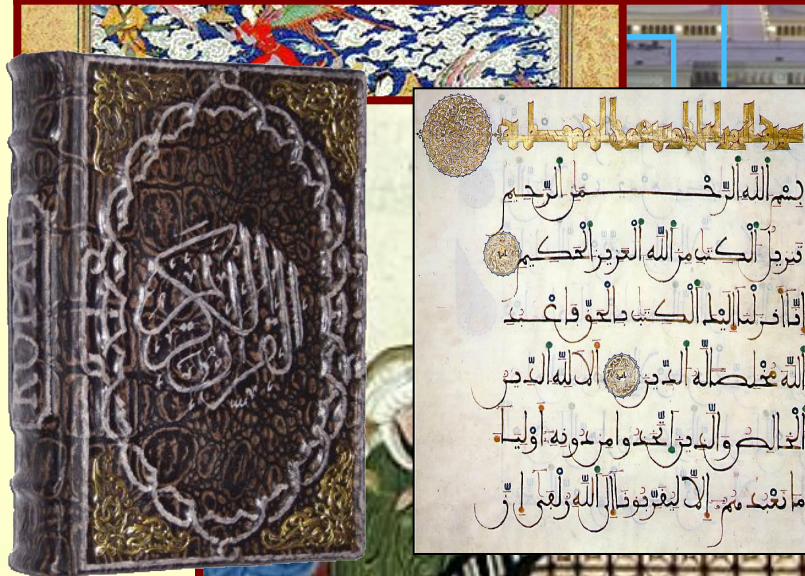 KORAN
القرآن الكريم
بِسْمِ اللَّهِ الرَّحْمَنِ الرَّحِيمِ
تَنزِيلُ الْكِتَبِ مِنَ اللَّهِ الْعَزِيزِ الْحَكِيمِ
إِنَّا أَنزَلْنَا إِلَيْكَ الْكِتَبَ بِالْحَقِّ فَاعْبُدِ
اللَّهَ مُخْلِصًا لَّهُ الدِّينَ أَلَا لِلَّهِ الدِّينُ
الْخَالِصُ وَالَّذِينَ اتَّخَذُوا مِن دُونِهِ أَوْلِيَاءَ
مَا نَعْبُدُهُمْ إِلَّا لِيُقَرِّبُونَا إِلَى اللَّهِ زُلْفَى إِنَّ